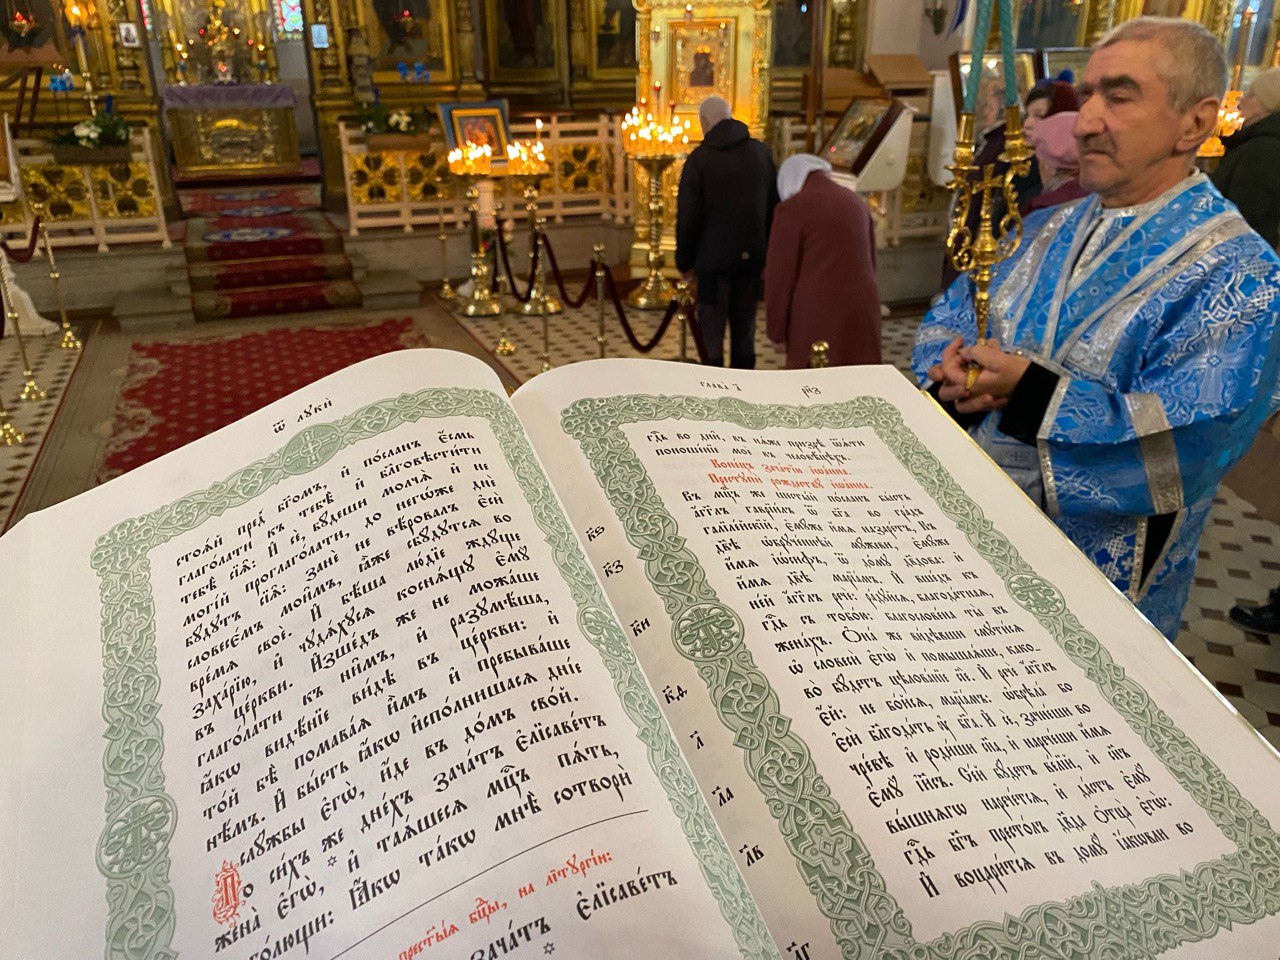 Ѿ ЛУКЍ
стоѧ́й пред̾ бг҃омъ, и҆ по́сланъ є҆́смь
глаго́лати къ тебѣ̀ и҆ бл҃говѣсти́ти
тебѣ̀ сїѧ̑: и҆ сѐ, бу́деши молчѧ̀ и҆ не
могі́й проглаго́лати, до негѡ́же днѐ
бу́дутъ сїѧ̑: занѐ не вѣ́ровалъ є҆сѝ
словесє́мъ мои̑мъ, ꙗ҆̀же сбу́дутсѧ во
вре́мѧ своѐ. И҆ бѣ́ша лю́дїе жду́ще
заха́рїю, и҆ чудѧ́хусѧ коснѧ́щу є҆му̀
въ цр҃кви. И҆зше́дъ же не можа́ше
глаго́лати къ ни̑мъ, и҆ разумѣ́ша,
ꙗ҆́кѡ видѣ́нїе ви́дѣ въ це́ркви: и҆
то́й бѣ̀ помава́ѧ и҆̀мъ и҆ пребыва́ше
нѣ́мъ. И҆ бы́сть ꙗ҆́кѡ и҆спо́лнишасѧ дні́е
слу́жбы є҆гѡ̀, и҆́де въ до́мъ сво́й.
По си́хъ же дне́хъ зача́тъ є҆лїсаве́тъ
жена̀ є҆гѡ̀, и҆ таѧ́шесѧ мцⷭ҇ъ пѧ́ть,
глаго́лющи: ꙗ҆́кѡ та́кѡ мнѣ̀ сотворѝ
прест҃ы́ѧ бцⷣы, на лїтꙋргі́и:
зача́тъ є҆лїсаве́тъ
ГЛАВА̀ а҃
рн҃з
гдⷭ҇ь во дни̑, въ нѧ́же призрѣ̀ ѿѧ́ти
поноше́нїе моѐ въ человѣ́цѣхъ.
Коне́цъ зача́тїю і҆ѡа́нна.
к҃ѕ
Въ мцⷭ҇ъ же шесты́й по́сланъ бы́сть
а҆́гг҃лъ гаврїи́лъ ѿ бг҃а во гра́дъ
галїле́йскїй, є҆мꙋ́же и҆́мѧ назаре́тъ,
к҃з
Къ дв҃ѣ ѡ҆брꙋче́ннѣй мꙋ́жеви, є҆мꙋ́же
и҆́мѧ і҆ѡ́сифъ, ѿ до́мꙋ дв҃дова: и҆
и҆́мѧ дв҃ѣ марїа́мь.
к҃и
И҆ вше́дъ къ
не́й а҆́гг҃лъ речѐ: ра́дꙋйсѧ, благода́тнаѧ,
гдⷭ҇ь съ тобо́ю: благослове́на ты̀ въ
жена́хъ.
Ѻ҆на́ же ви́дѣвши смꙋти́сѧ
ѡ҆ словесѝ є҆гѡ̀ и҆ помышлѧ́ше, како-
во̀ бꙋ́детъ цѣлова́нїе сїѐ.
л҃
И҆ речѐ а҆́гг҃лъ
є҆́й: не бо́йсѧ, марїа́мь: ѡ҆брѣ́ла бо
є҆сѝ бл҃года́ть ᲂу҆ бг҃а.
л҃а
И҆ сѐ, зачне́ши во
чре́вѣ и҆ роди́ши сн҃а, и҆ нарече́ши и҆́мѧ
є҆мꙋ̀ і҆и҃съ.
л҃в
Се́й бꙋ́детъ ве́лїй, и҆ сн҃ъ
вы́шнѧгѡ нарече́тсѧ, и҆ да́стъ є҆мꙋ̀
гдⷭ҇ь бг҃ъ прⷭ҇то́лъ дв҃да ѻ҆тца̀ є҆гѡ̀:
л҃г
И҆ воцр҃и́тсѧ въ домꙋ̀ і҆а́кѡвли во